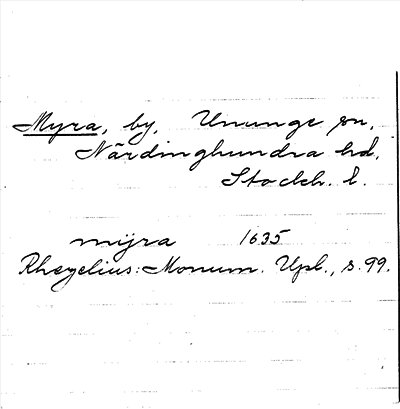 Myra, by, Ununge sn,
Närdinghundra hd,
Stockh. l.
mÿra 1635
Rhezelius: Monum. Upl., s. 99.